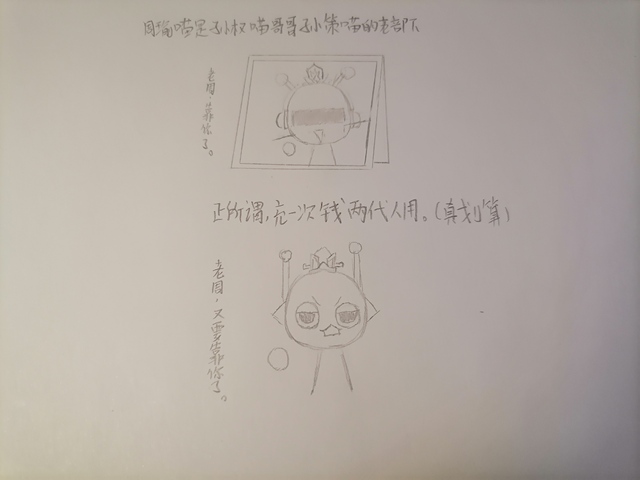 周瑜喵是孙权喵哥哥孙策喵的老部下
老周，靠你了。
正所谓，充一次钱两代人用。(真划算)
老周，又要靠你了。